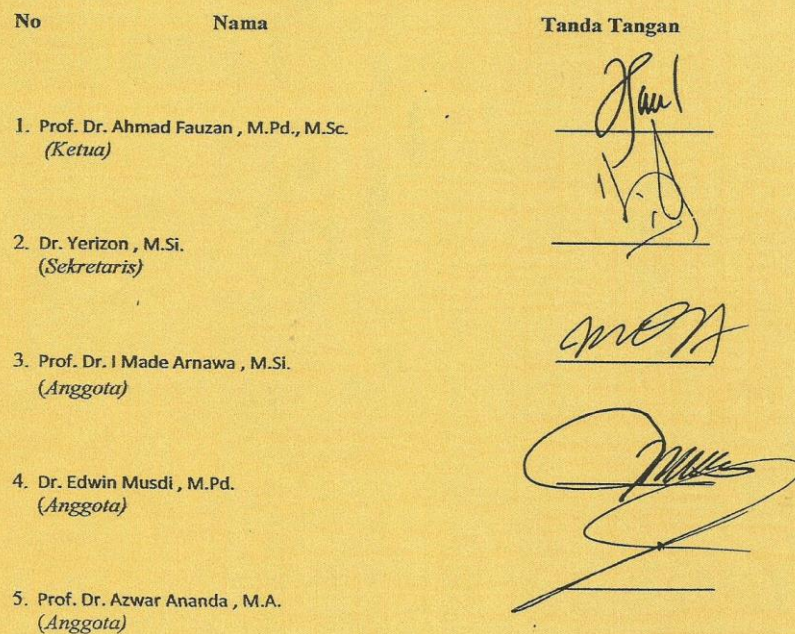 No Nama Tanda Tangan
1. Prof. Dr. Ahmad Fauzan , M.Pd., M.Sc.
(Ketua)
2. Dr. Yerizon , M.Si.
(Sekretaris)
3. Prof. Dr. I Made Arnawa , M.Si.
(Anggota)
4. Dr. Edwin Musdi , M.Pd.
(Anggota)
5. Prof. Dr. Azwar Ananda , M.A.
(Anggota)